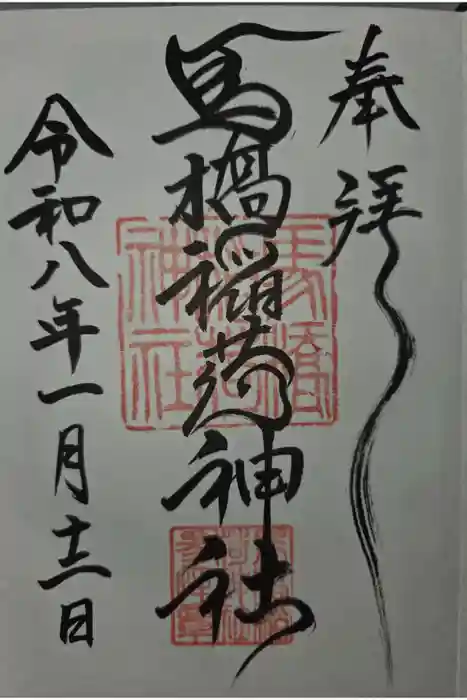 奉拝
馬橋稲荷神社
令和八年一月十二日
馬橋稲荷神社